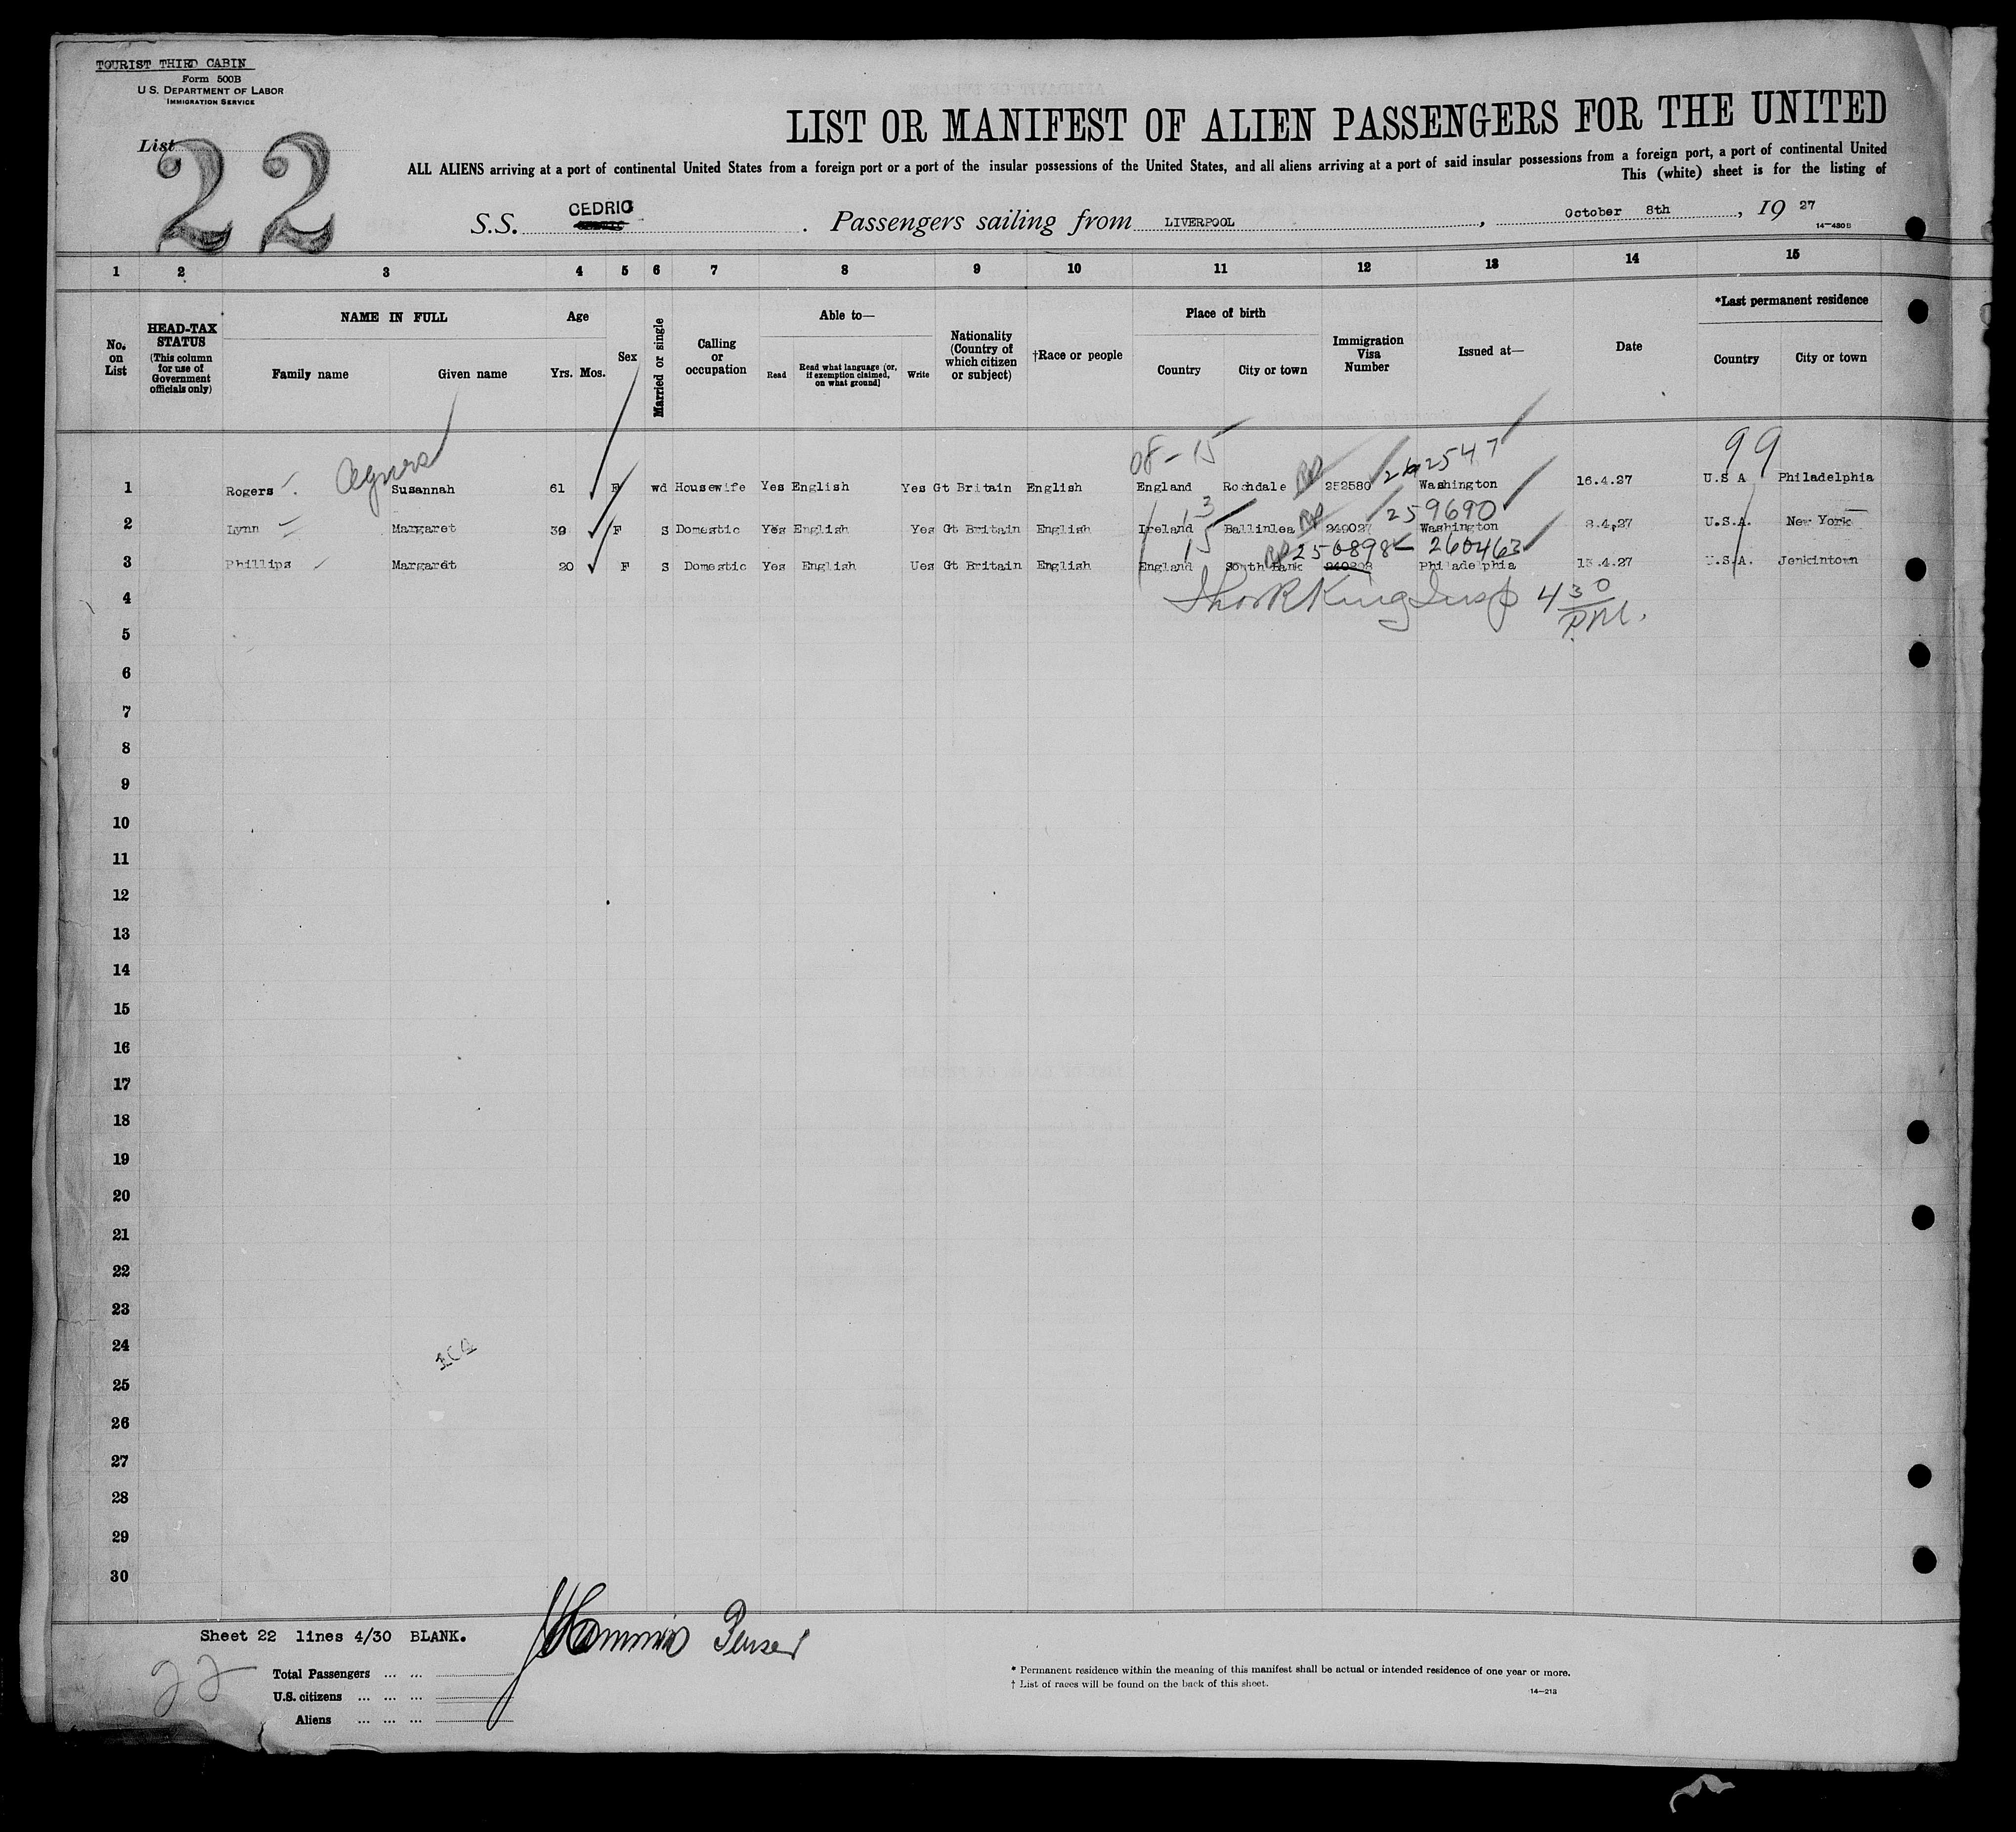 TOURIST THIRD CABIN
Form 500B
U.S. DEPARTMENT OF LABOR
IMMIGRATION SERVICE
List 22
LIST OR MANIFEST OF ALIEN PASSENGERS FOR THE UNITED
ALL ALIENS arriving at a port of continental United States from a foreign port or a port of the insular possessions of the United States, and all aliens arriving at a port of said insular possessions from a foreign port, a port of continental United
This (white) sheet is for the listing of
S.S. CEDRIC . Passengers sailing from LIVERPOOL , October 8th , 19 27
14-430B
1 2 3 4 5 6 7 8 9 10 11 12 13 14 15
No. on List
HEAD-TAX STATUS (This column for use of Government officials only)
NAME IN FULL
Family name Given name
Age
Yrs. Mos.
Sex
Married or single
Calling or occupation
Able to—
Read Read what language (or, if exemption claimed, on what ground) Write
Nationality (Country of which citizen or subject)
†Race or people
Place of birth
Country City or town
Immigration Visa Number
Issued at—
Date
*Last permanent residence
Country City or town
08-15 99
Agnes 262547
1 Rogers Susannah 61 F wd Housewife Yes English Yes Gt Britain English England Rochdale RP 252580 Washington 16.4.27 U.S A Philadelphia
13 259690
2 Lynn Margaret 39 F S Domestic Yes English Yes Gt Britain English Ireland Ballinlea RP 249027 Washington 8.4.27 U.S.A. New York
15 RP 250898 - 260463
3 Phillips Margaret 20 F S Domestic Yes English Ues Gt Britain English England South Bank Philadelphia 13.4.27 U.S.A. Jenkintown
4 King Insp 4 30 P.M.
5
6
7
8
9
10
11
12
13
14
15
16
17
18
19
20
21
22
23
24
25
26
27
28
29
30
Sheet 22 lines 4/30 BLANK.
Purser
22
Total Passengers ... ...
U.S. citizens ... ... ...
Aliens ... ... ...
* Permanent residence within the meaning of this manifest shall be actual or intended residence of one year or more.
† List of races will be found on the back of this sheet.
14-213